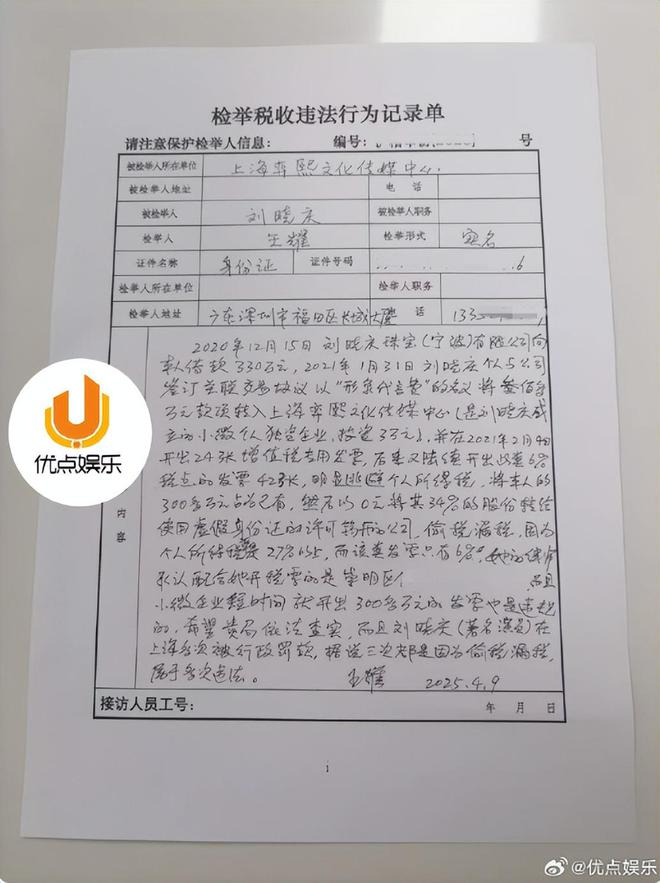 检举税收违法行为记录单
请注意保护检举人信息： 编号： 号
被检举人所在单位 上海弈熙文化传媒中心.
被检举人地址 电 话
被检举人 刘晓庆 被检举人职务
检举人 王耀 检举形式 实名
证件名称 身份证 证件号码 6
检举人所在单位 检举人职务
检举人地址 广东深圳市福田区长城大厦 话 133
2020年12月15日刘晓庆珠宝(宁波)有限公司向
本人借款330万元，2021年1月31日刘晓庆个人与公司
签订关联交易协议以"形象代言费"的名义将叁佰多
万元款项转入上海弈熙文化传媒中心(是刘晓庆成
立的小微个人独资企业，投资3万元)，并在2021年2月4日
开出24张增值税专用发票，后来又陆续开出此类6%
税点的发票42张，明显逃避个人所得税，将本人的
300多万元占为己有，然后以0元将其34%的股份转给
使用虚假身份证的许可转所的公司，偷税漏税，因为
个人所得税要27%以上，而该类发票只有6%，她的律师
承认配合她开税票的是崇明区 而且
小微企业短时间就开出300多万元的发票也是违规
的，希望贵局依法查实，而且刘晓庆(著名演员)在
上海多次被行政罚款，据说三次都是因为偷税漏税，
属于多次违法。 王耀 2025.4.9
内容
接访人员工号： 年 月 日
1
优点娱乐
@优点娱乐